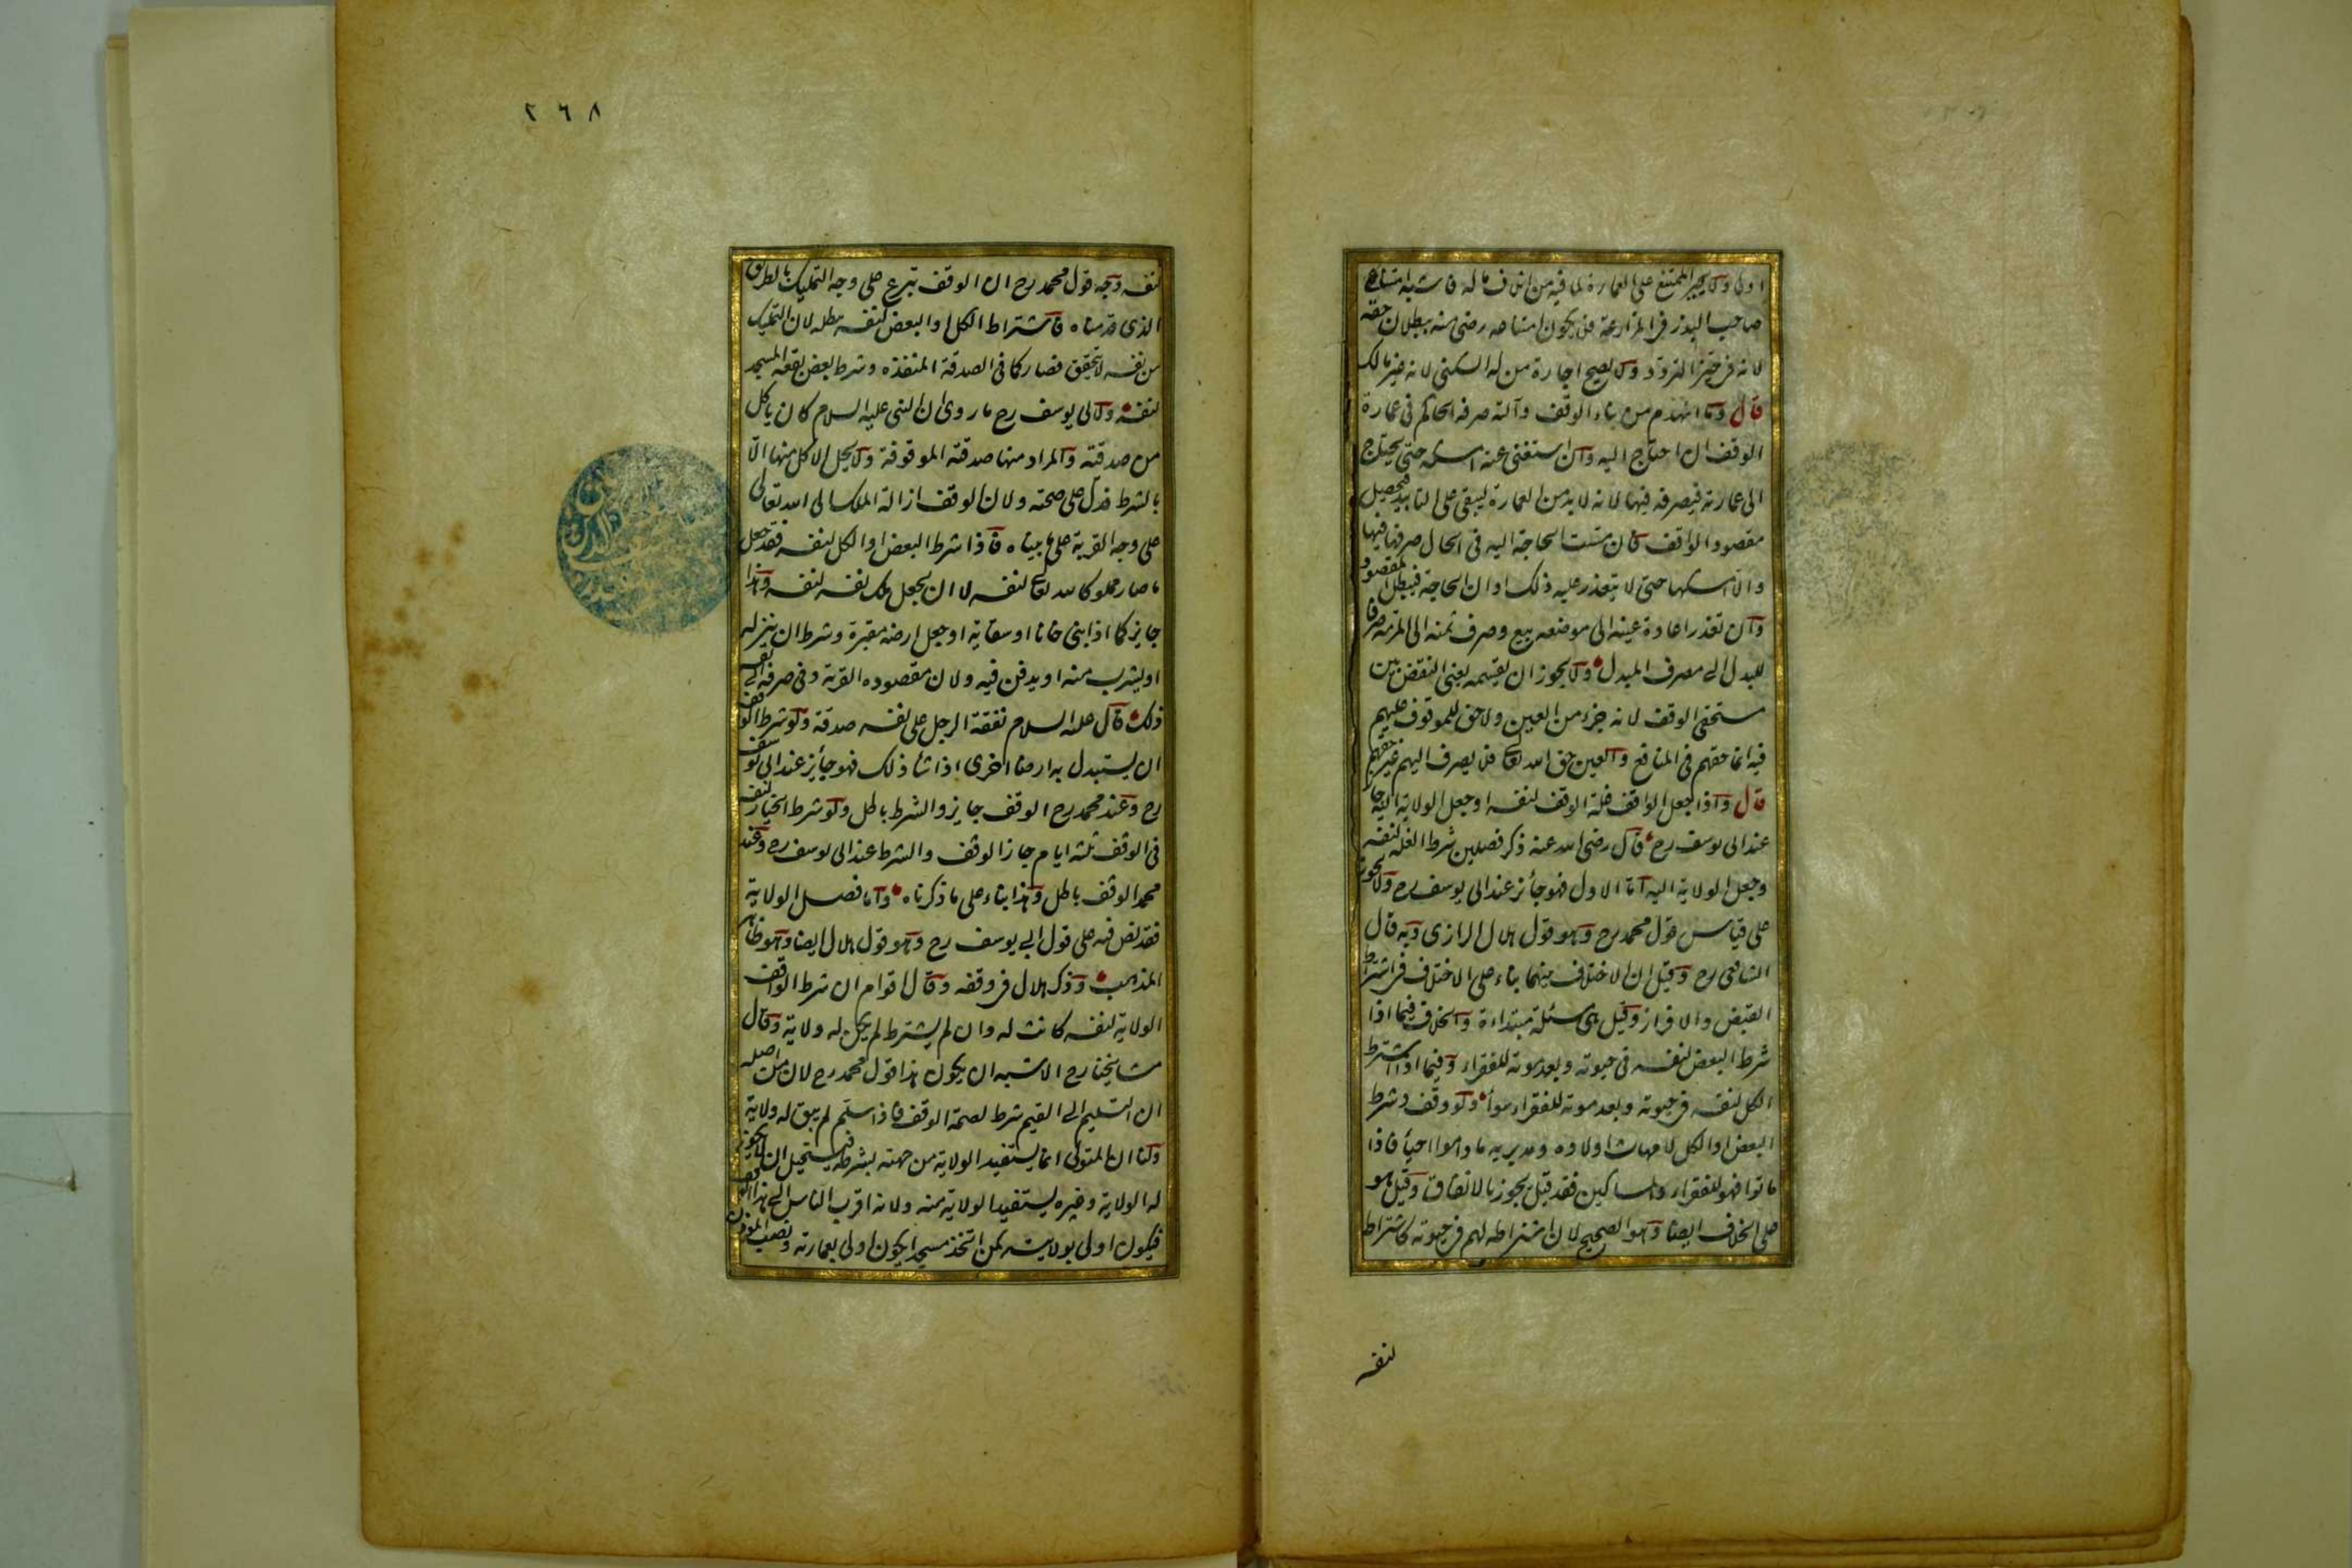 اولى ولا يجبر الممتنع على العمارة لما فيه من اتلاف ماله فاشبه امتناع
صاحب البذر في المزارعة فلا يكون امتناعه رضى منه ببطلان حقه
لانه في حيز التردد ولا يصح اجارة من له السكنى لانه غير مالك
قال وما انهدم من بناء الوقف وآلته صرفه الحاكم في عمارة
الوقف ان احتاج اليه وان استغنى عنه امسكه حتى يحتاج
الى عمارته فيصرفه فيها لانه لا بد من العمارة ليبقى على التابيد فيحصل
مقصود الواقف فان مست الحاجة اليه في الحال صرفها فيها
والا امسكها حتى لا يتعذر عليه ذلك اوان الحاجة فيبطل المقصود
وان تعذر اعادة عينه الى موضعه بيع وصرف ثمنه الى المرمة صرفا
للبدل الى مصرف المبدل ولا يجوز ان يقسمه يعنى النقض بين
مستحقى الوقف لانه جزء من العين ولا حق للموقوف عليهم
فيه انما حقهم في المنافع والعين حق الله تعالى فلا يصرف اليهم غير حقهم
قال واذا جعل الواقف غلة الوقف لنفسه او جعل الولاية اليه جاز
عند ابى يوسف رح قال رضى الله عنه ذكر فصلين شرط الغلة لنفسه
وجعل الولاية اليه اما الاول فهو جائز عند ابى يوسف رح ولا يجوز
على قياس قول محمد رح وهو قول هلال الرازى وبه قال
الشافعى رح وقيل ان الاختلاف بينهما بناء على الاختلاف في اشتراط
القبض والافراز وقيل هى مسئلة مبتداءة والخلاف فيما اذا
شرط البعض لنفسه في حيوته وبعد موته للفقراء وفيما اذا اشترط
الكل لنفسه في حيوته وبعد موته للفقراء سواء ولو وقف وشرط
البعض او الكل لامهات اولاده ومدبريه ما داموا احياء فاذا
ماتوا فهو للفقراء والمساكين فقد قيل يجوز بالاتفاق وقيل هو
على الخلاف ايضا وهو الصحيح لان اشتراطه لهم في حيوته كاشتراطه
لنفسه
٢٦٨
نفسه وجه قول محمد رح ان الوقف تبرع على وجه التمليك بالطريق
الذى قدمناه فاشتراط الكل او البعض لنفسه يبطله لان التمليك
من نفسه لا يتحقق فصار كما في الصدقة المنفذة وشرط بعض بقعة المسجد
لنفسه ولابى يوسف رح ما روى ان النبى عليه السلام كان ياكل
من صدقته والمراد منها صدقته الموقوفة ولا يحل الاكل منها الا
بالشرط فدل على صحته ولان الوقف ازالة الملك الى الله تعالى
على وجه القربة على ما بيناه فاذا شرط البعض او الكل لنفسه فقد جعل
ما صار مملوكا لله تعالى لنفسه لا ان يجعل ملك نفسه لنفسه وهذا
جايز كما اذا بنى خانا او سقاية او جعل ارضه مقبرة وشرط ان ينزله
او يشرب منه او يدفن فيه ولان مقصوده القربة وفي صرفه الى نفسه
ذلك قال عليه السلام نفقة الرجل على نفسه صدقة ولو شرط الواقف
ان يستبدل به ارضا اخرى اذا شاء ذلك فهو جائز عند ابى يوسف
رح وعند محمد رح الوقف جايز والشرط باطل ولو شرط الخيار لنفسه
في الوقف ثلثة ايام جاز الوقف والشرط عند ابى يوسف رح وعند
محمد الوقف باطل وهذا بناء على ما ذكرناه واما فصل الولاية
فقد نص فيه على قول ابى يوسف رح وهو قول هلال ايضا وهو ظاهر
المذهب وذكر هلال في وقفه وقال اقوام ان شرط الواقف
الولاية لنفسه كانت له وان لم يشترط لم يكن له ولاية وقال
مشايخنا رح الاشبه ان يكون هذا قول محمد رح لان من اصله
ان التسليم الى القيم شرط لصحة الوقف فاذا سلم لم يبق له ولاية
ولنا ان المتولى انما يستفيد الولاية من جهته بشرطه فيستحيل ان لا يكون
له الولاية وغيره يستفيد الولاية منه ولانه اقرب الناس الى هذا الوقف
فيكون اولى بولايته كمن اتخذ مسجدا يكون اولى بعمارته ونصب المؤذن